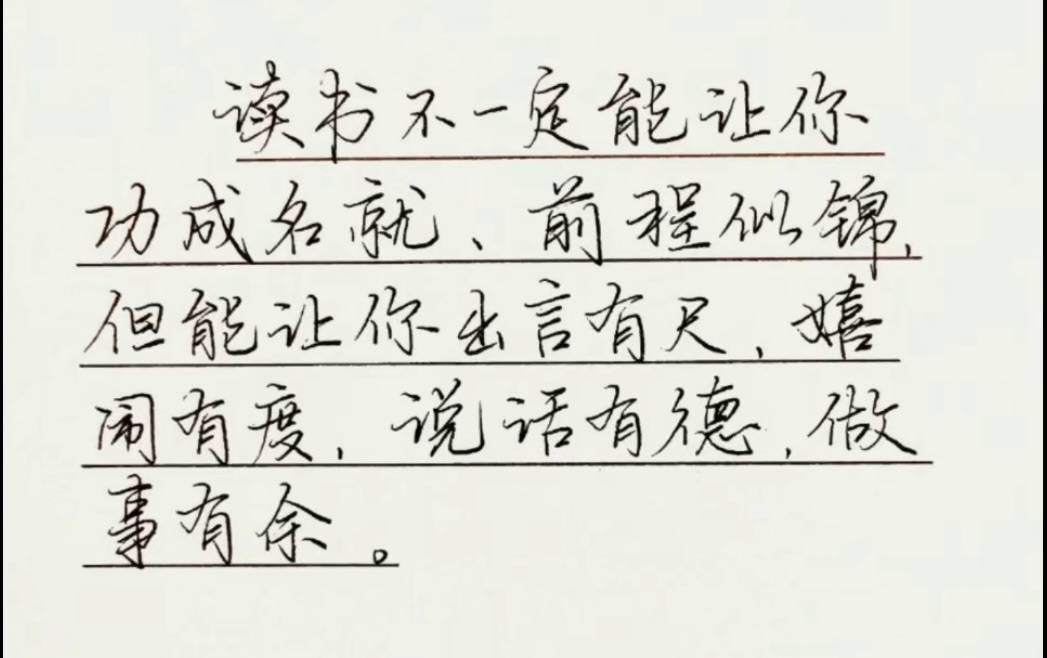 读书不一定能让你
功成名就、前程似锦,
但能让你出言有尺,嬉
闹有度,说话有德,做
事有余。